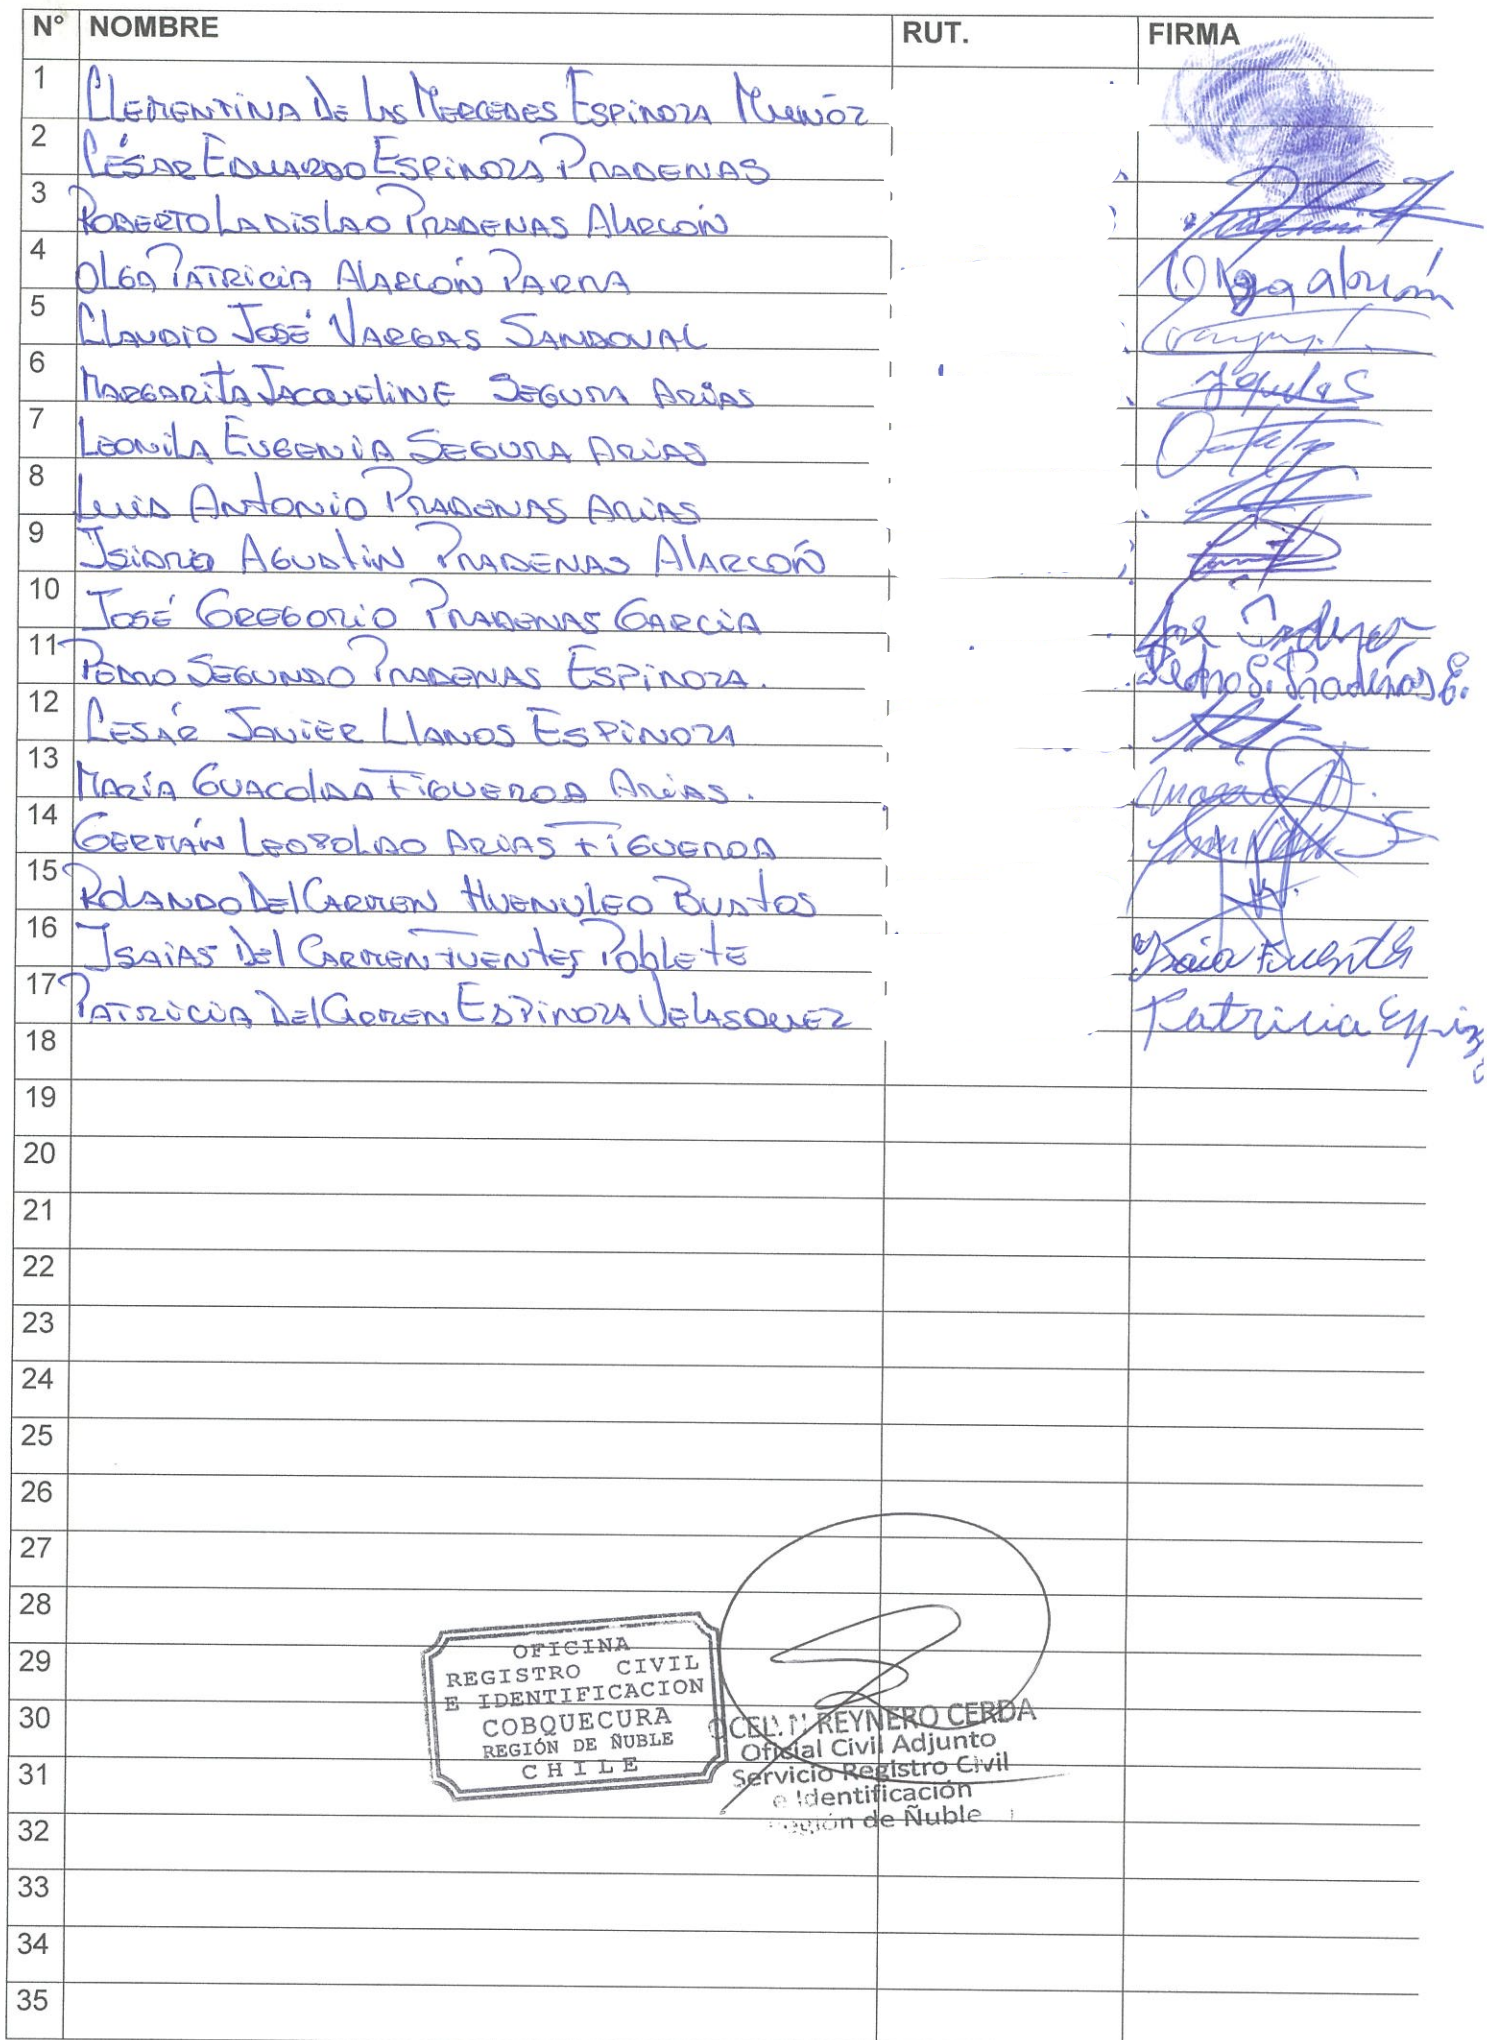 N° NOMBRE RUT. FIRMA
1 CLEMENTINA DE LAS MERCEDES ESPINOZA MUÑÓZ
2 CÉSAR EDUARDO ESPINOZA PRADENAS
3 ROBERTO LADISLAO PRADENAS ALARCÓN
4 OLGA PATRICIA ALARCÓN PARRA Olga alarcón
5 CLAUDIO JOSÉ VARGAS SANDOVAL
6 MARGARITA JACQUELINE SEGURA ARIAS
7 LEONILA EUGENIA SEGURA ARIAS
8 LUIS ANTONIO PRADENAS ARIAS
9 ISIDRO AGUSTIN PRADENAS ALARCÓN
10 JOSÉ GREGORIO PRADENAS GARCIA
11 PEDRO SEGUNDO PRADENAS ESPINOZA. Pedro S. Pradenas E.
12 CESÁR JAVIER LLANOS ESPINOZA
13 MARÍA GUACOLDA FIGUEROA ARIAS.
14 GERMÁN LEOPOLDO ARIAS FIGUEROA
15 ROLANDO DEL CARMEN HUENULEO BUSTOS
16 ISAIAS DEL CARMEN FUENTES POBLETE Isaia Fuentes
17 PATRICIA DEL CARMEN ESPINOZA VELASQUEZ Patricia Espinoza
18
19
20
21
22
23
24
25
26
27
28
29
30
31
32
33
34
35
OFICINA
REGISTRO CIVIL
E IDENTIFICACION
COBQUECURA
REGIÓN DE ÑUBLE
CHILE
REYNERO CERDA
Oficial Civil Adjunto
Servicio Registro Civil
e Identificación
Región de Ñuble